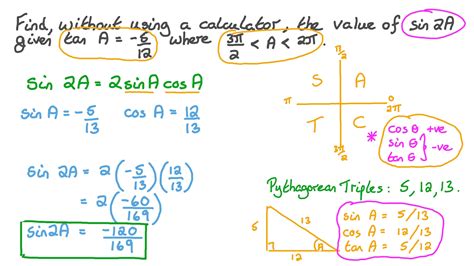 Find, without using a calculator, the value of sin 2A
given tan A = -5/12 where 3π/2 < A < 2π.
sin 2A = 2 sin A cos A
sin A = -5/13 cos A = 12/13
sin 2A = 2(-5/13)(12/13)
= 2(-60/169)
sin 2A = -120/169
S A
π 0
2π
T C
3π/2
* cos θ +ve
sin θ
tan θ } -ve
Pythagorean Triples: 5, 12, 13.
5 13 12 A
sin A = 5/13
cos A = 12/13
tan A = 5/12